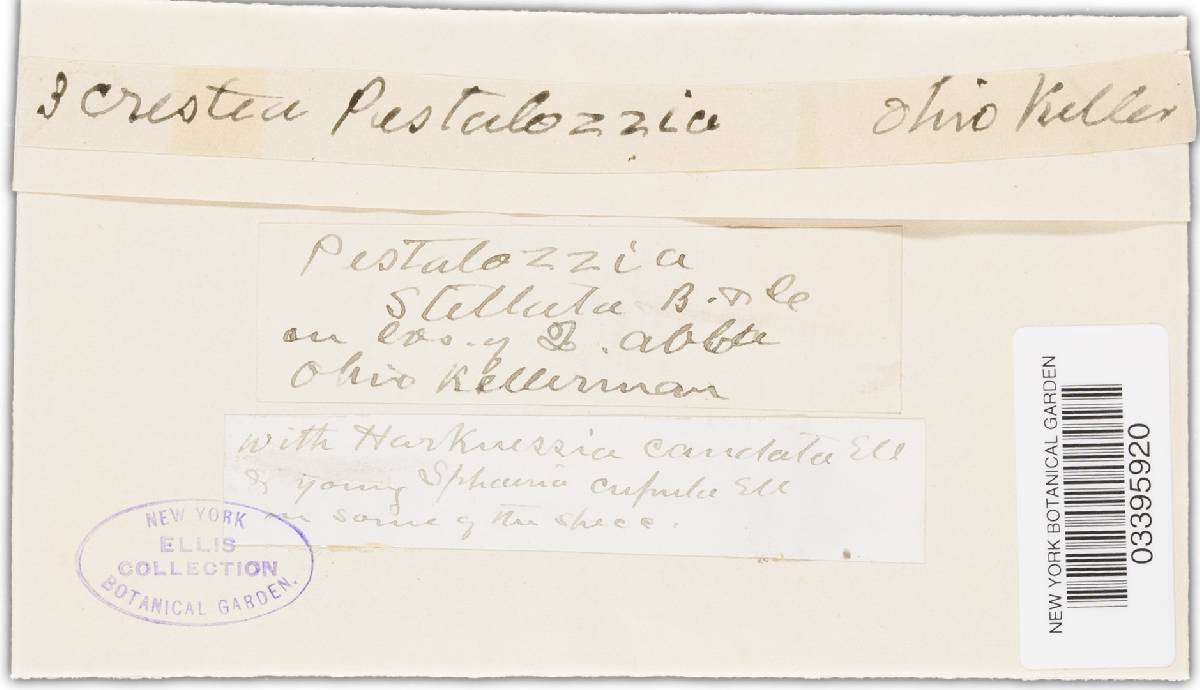 3 crested Pestalozzia Ohio Keller
Pestalozzia
Stellata B. & C
on lvs. of Q. alba
Ohio Kellerman
with Harknessia caudata Ell
& young Sphaeria cupula Ell
on some of the specc.
NEW YORK
ELLIS
COLLECTION
BOTANICAL GARDEN.
NEW YORK BOTANICAL GARDEN
03395920